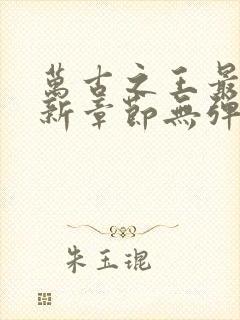 萬古之王最
新章節無彈
朱玉琨